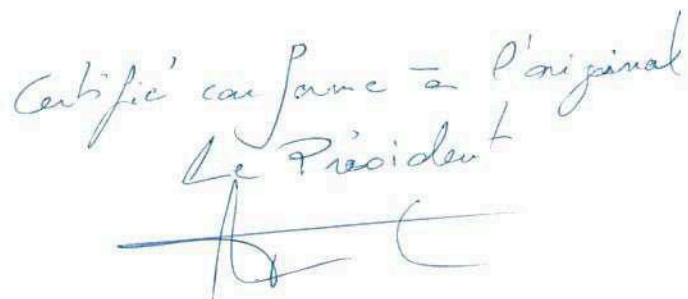 Certifié conforme à l'original
Le Président